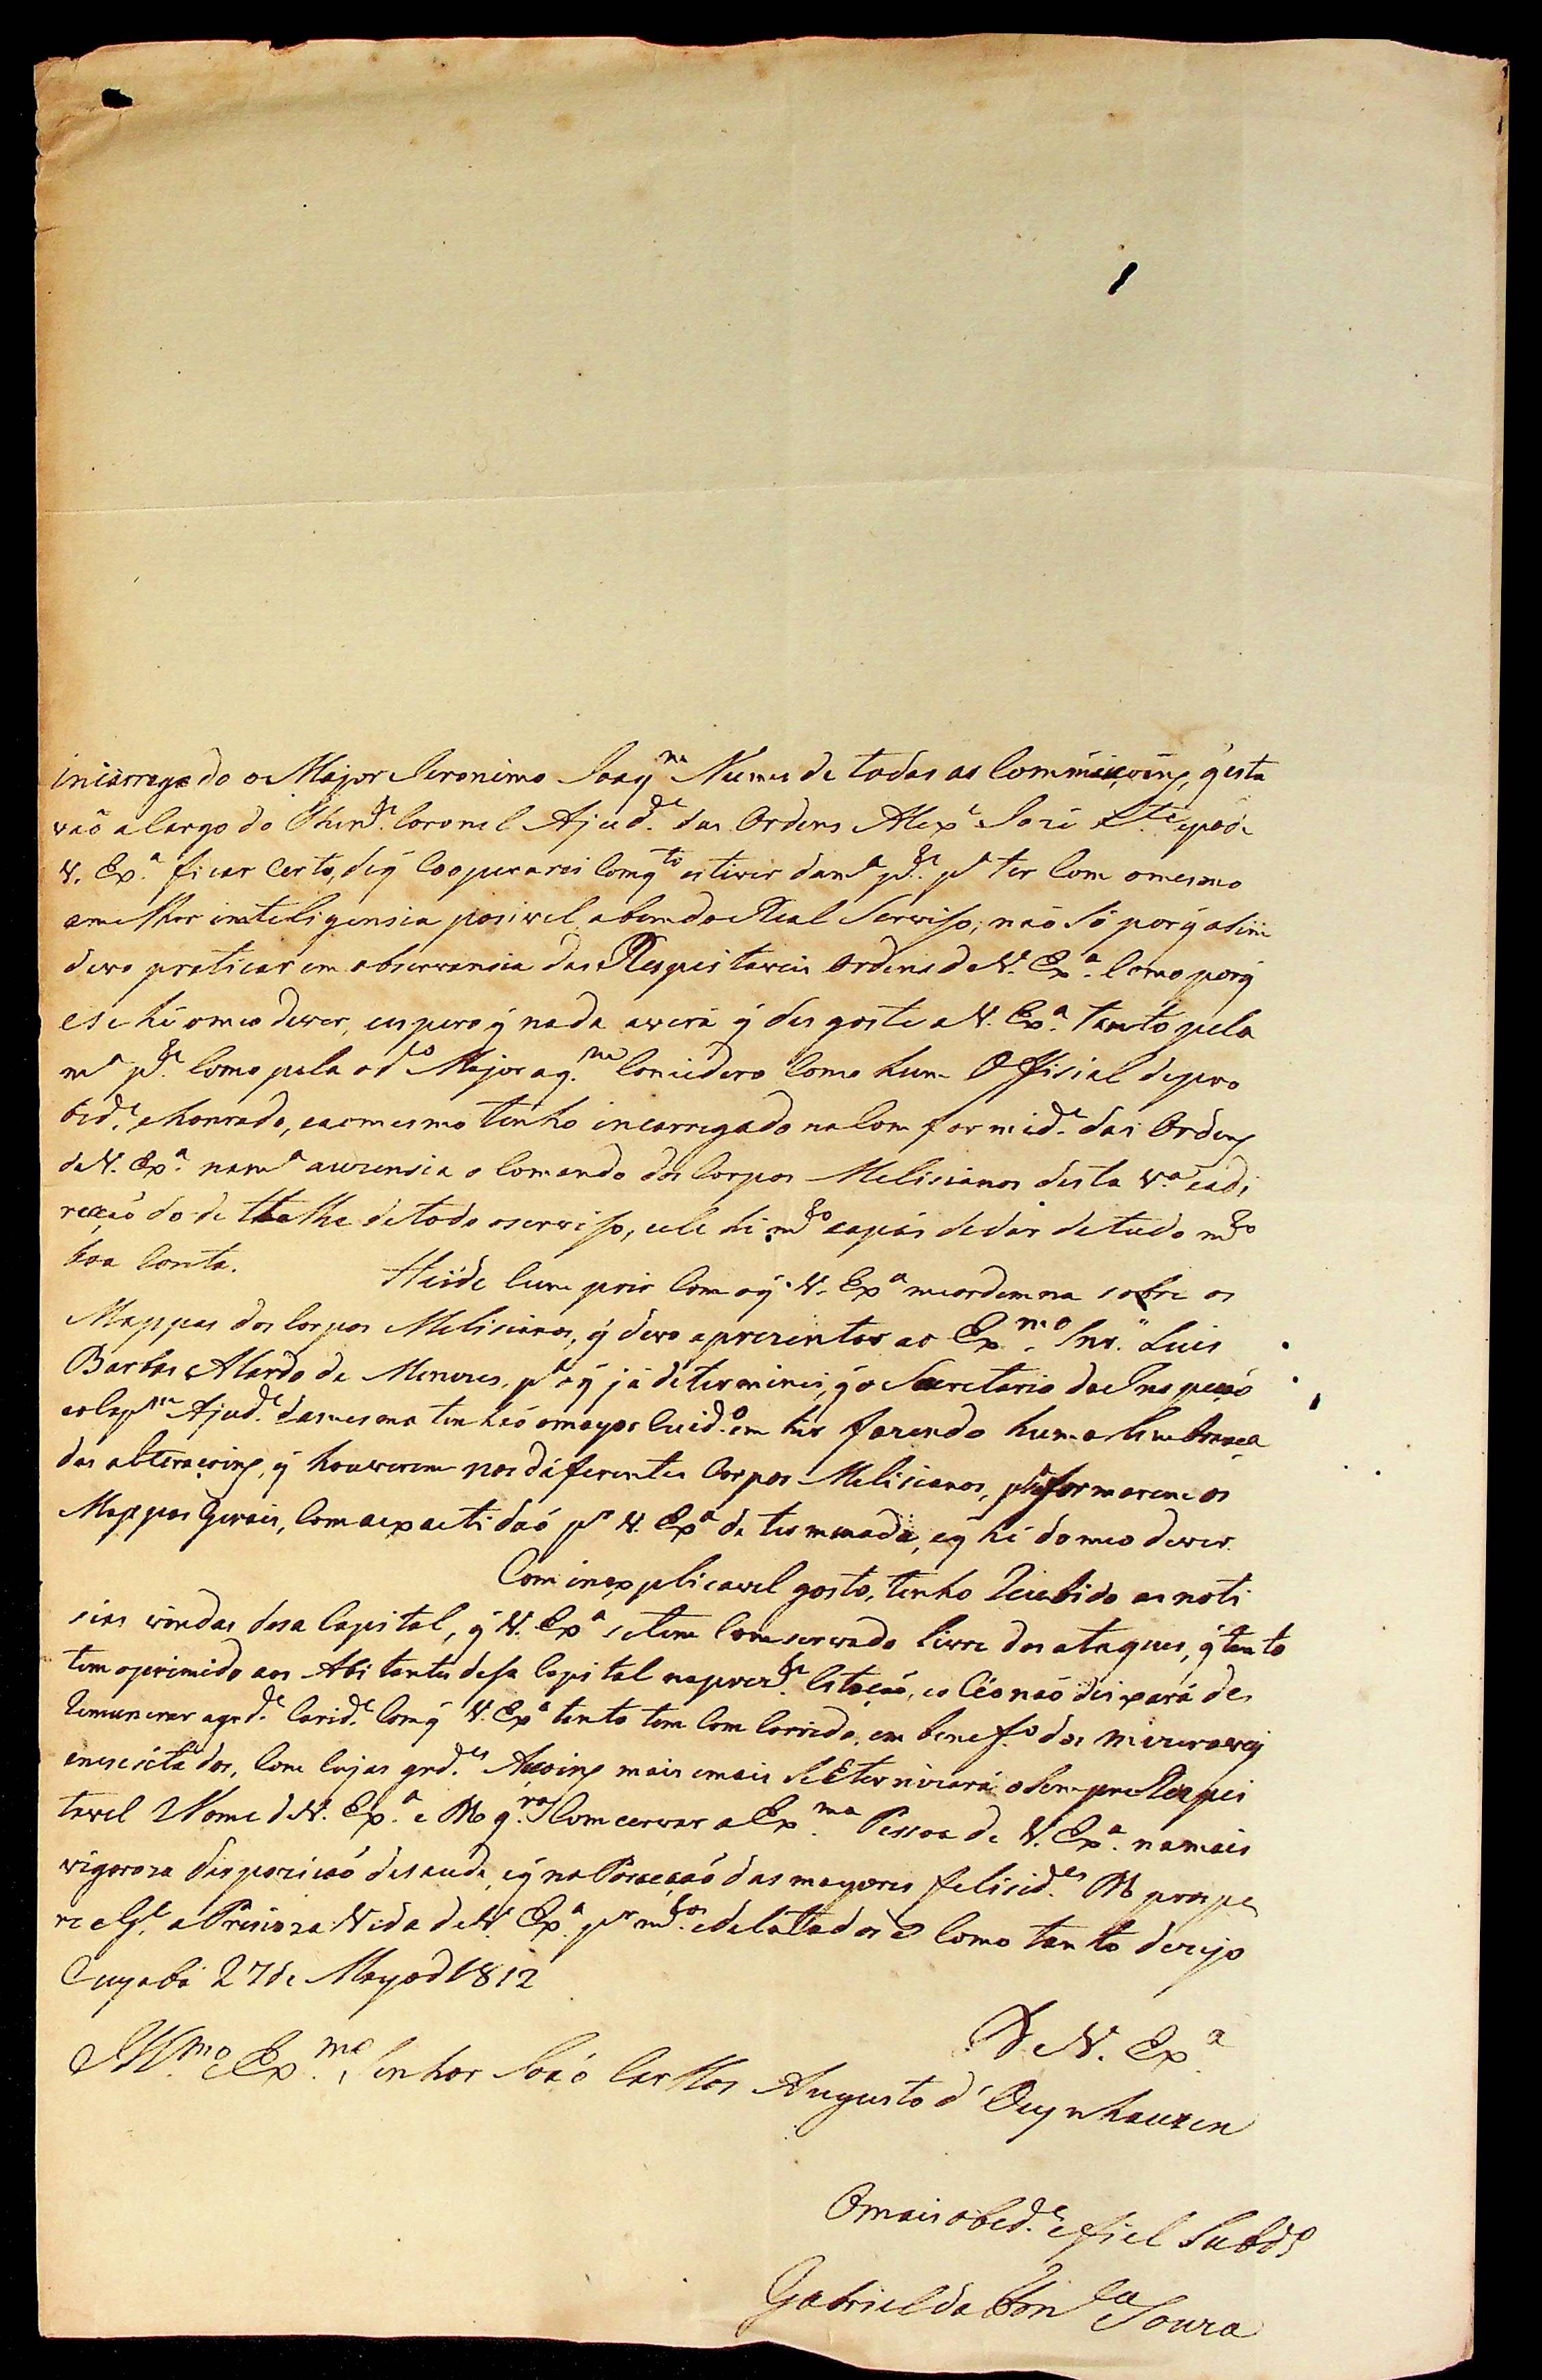 incarregado o Major Jeronimo Joaq.m Nunes de todas as Commiçoens, q̃ esta
vaõ a Cargo do Then.e Coronel Ajud.e das Ordens Alex.e Joze L.te e pode
V. Ex.a ficar certo, de q̃ cooperarei com q.to estiver da m.a p.te p.a ter com o mesmo
a melhor inteligensia posivel abem do Real Serviso; naõ só porq̃ asim
devo praticar em observansia das Respeitaveis Ordens de V. Ex.a como porq̃
ese hé o meo dever, e espero q̃ nada averá q̃ desgoste a V. Ex.a tanto pela
m.a p.te como pela o d.o Major aq.m Concidero como hum Offisial de pro
bid.e e honrado, e ao mesmo tenho incarregado na Comformid.e das Ordens
de V. Ex.a na m.a auzensia o Comando dos Corpos Melisianos desta V.a e a di
recçaõ do detalhe de todo o serviso, e ele hé m.to capás de dar de tudo m.to
boa Conta.
Heide cumprir com o q̃ V. Ex.a me ordemna sobre os
Mappas dos Corpos Melisianos, q̃ devo aprezentar ao Ex.mo Snr. Luis
Barba Alardo de Menezes, p.a o q̃ já determinei, q̃ o Secretario da Inspeçaõ
e o Cap.m Ajud.e da mesma tenhaõ o mayor Cuid.o em hir fazendo huma Lembransa
das alteraçoens, q̃ houverem nos diferentes Corpos Melisianos, p.a se formarem os
Mappas Gerais, com a expactidaõ p.r V. Ex.a determinada, e q̃ hé do meo dever.
Com inexplicavel gosto, tenho Recebido as noti
sias vindas desa Capital, q̃ V. Ex.a se tem Comservado livre dos ataques, q̃ tanto
tem oprimido aos Abitantes desa Capital na prez.te Estaçaõ, e o Céo naõ deixará de
Remunerar a gr.de Carid.e Com q̃ V. Ex.a tanto tem Comcorrido, em benef.o dos mizeraveis
enesesitados, Com Cujas gr.des Açoins mais e mais Se Eternizará o Sempre Respei
tavel Nome de V. Ex.a e D.s q.ra Comcervar a Ex.ma Pessoa de V. Ex.a na mais
vigoroza dispoziçaõ de saude, e q̃ na Poseçaõ das mayores felisid.es D.s prospe
re e G.e a Presioza Vida de V. Ex.a p.r m.tos e delatados a.s Como tanto dezejo
Cuyabá 27 de Mayo d 1812
De V. Ex.a
Ill.mo e Ex.mo Senhor Joaõ Carllos Augusto d'Oeynhauzen
O mais obed.e e fiel Subd.o
Gabriel da Fon.ca Souza